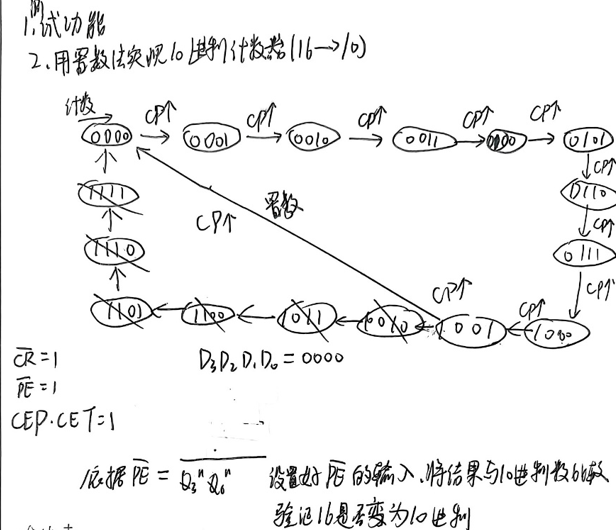 1. 测试功能
2. 用置数法实现10进制计数器(16→10)
计数
0000 CP↑ 0001 CP↑ 0010 CP↑ 0011 CP↑ CP↑ 0101
CP↑
1111 0110
置数 CP↑
CP↑
1110 0111
CP↑ CP↑
1101 1100 1011 1010 1001 CP↑ 1000
C̅R̅=1 D₃D₂D₁D₀=0000
P̅E̅=1
CEP·CET=1
依据P̅E̅= Q₃ⁿ Q₀ⁿ 设置好P̅E̅的输入,将结果与10进制数比较
验证16是否变为10进制